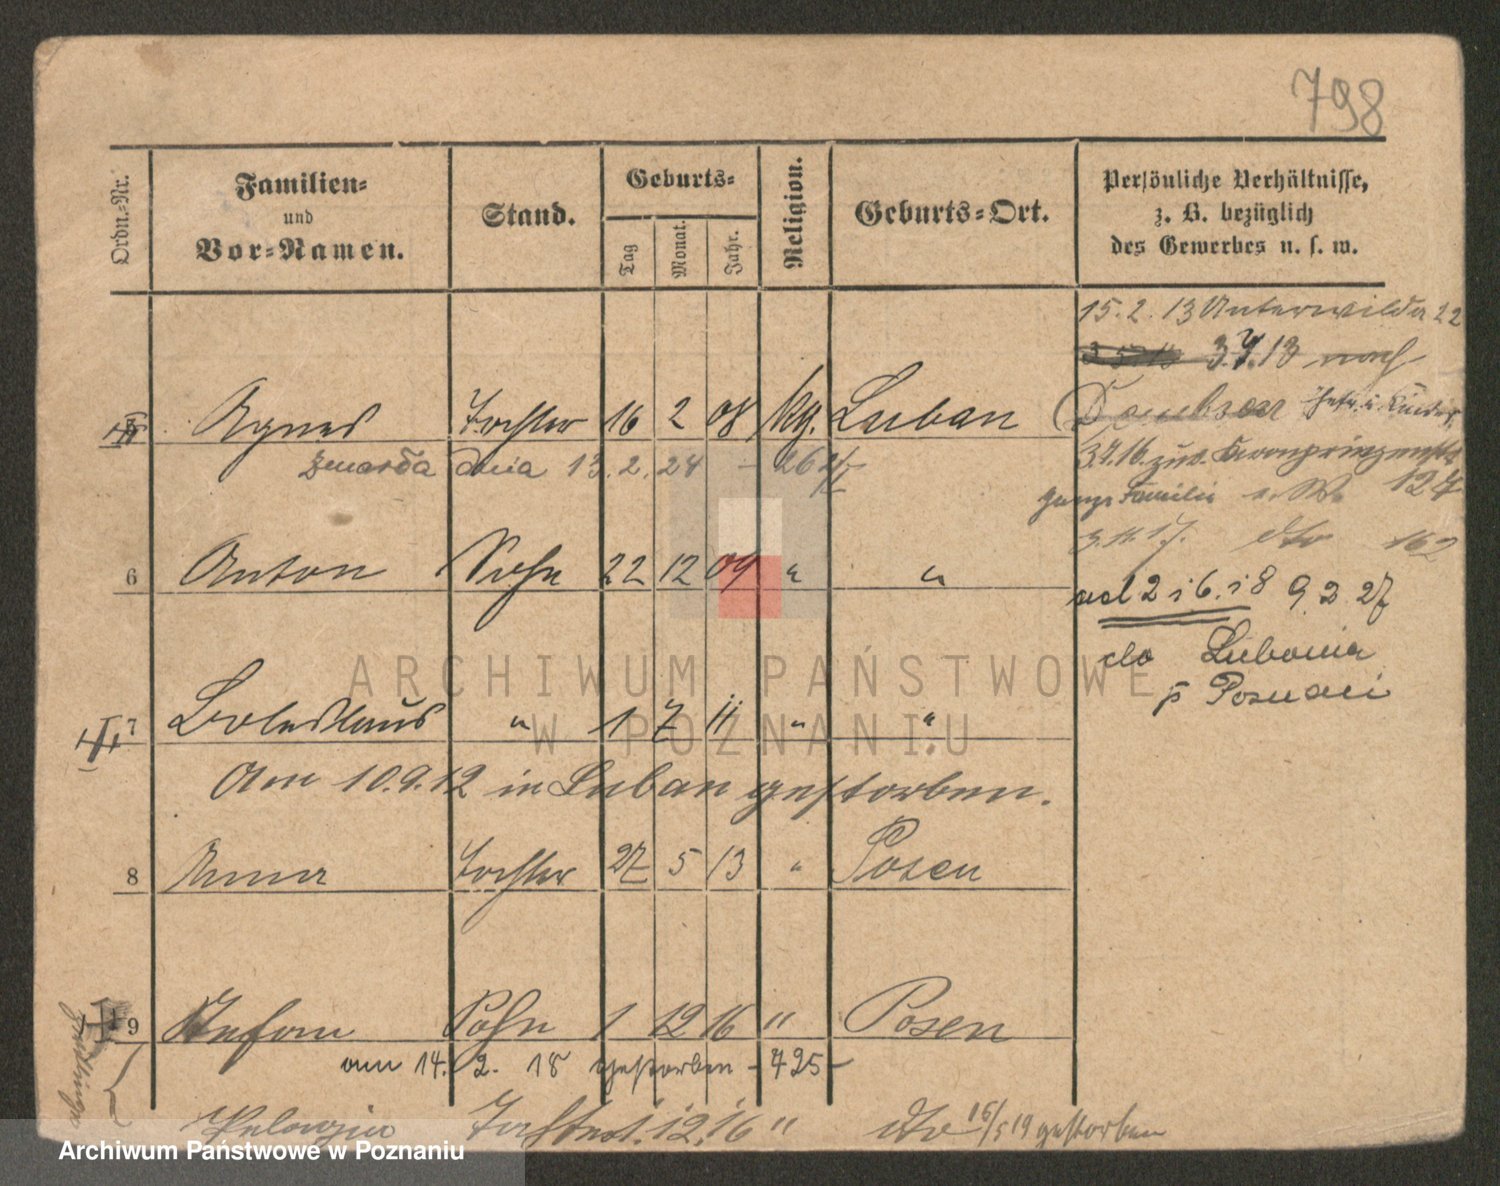 798
Ordn.-Nr. Familien- und Vor-Namen. Stand. Geburts- Tag Monat. Jahr. Religion. Geburts-Ort. Persönliche Verhältnisse, z. B. bezüglich des Gewerbes u. s. w.
15. 2. 13 Unterwilda 22
3.4.13 nach
5 Agnes Tochter 16 2 08 kg. Luban
Dombsen
zmarła dnia 13.2.24 - 26
3.4.16. zur. Kronprinzenstr
ganze Familie 127
3.11.17. dto 162
6 Anton Sohn 22 12 09 " "
ad 2 i 6. i 8 9 2 27
do Lubonia
p Poznań
7 Boleslaus " 1 7 11 " "
Am 10.9.12 in Luban gestorben.
8 Anna Tochter 27 5 13 " Posen
9 Stefan Sohn 1 12 16 " Posen
am 14. 2. 18 gestorben - 725 -
Zwillinge
Pelagia Tochter 1. 12. 16 " dto 16/5 19 gestorben
ARCHIWUM PAŃSTWOWE
W POZNANIU
Archiwum Państwowe w Poznaniu